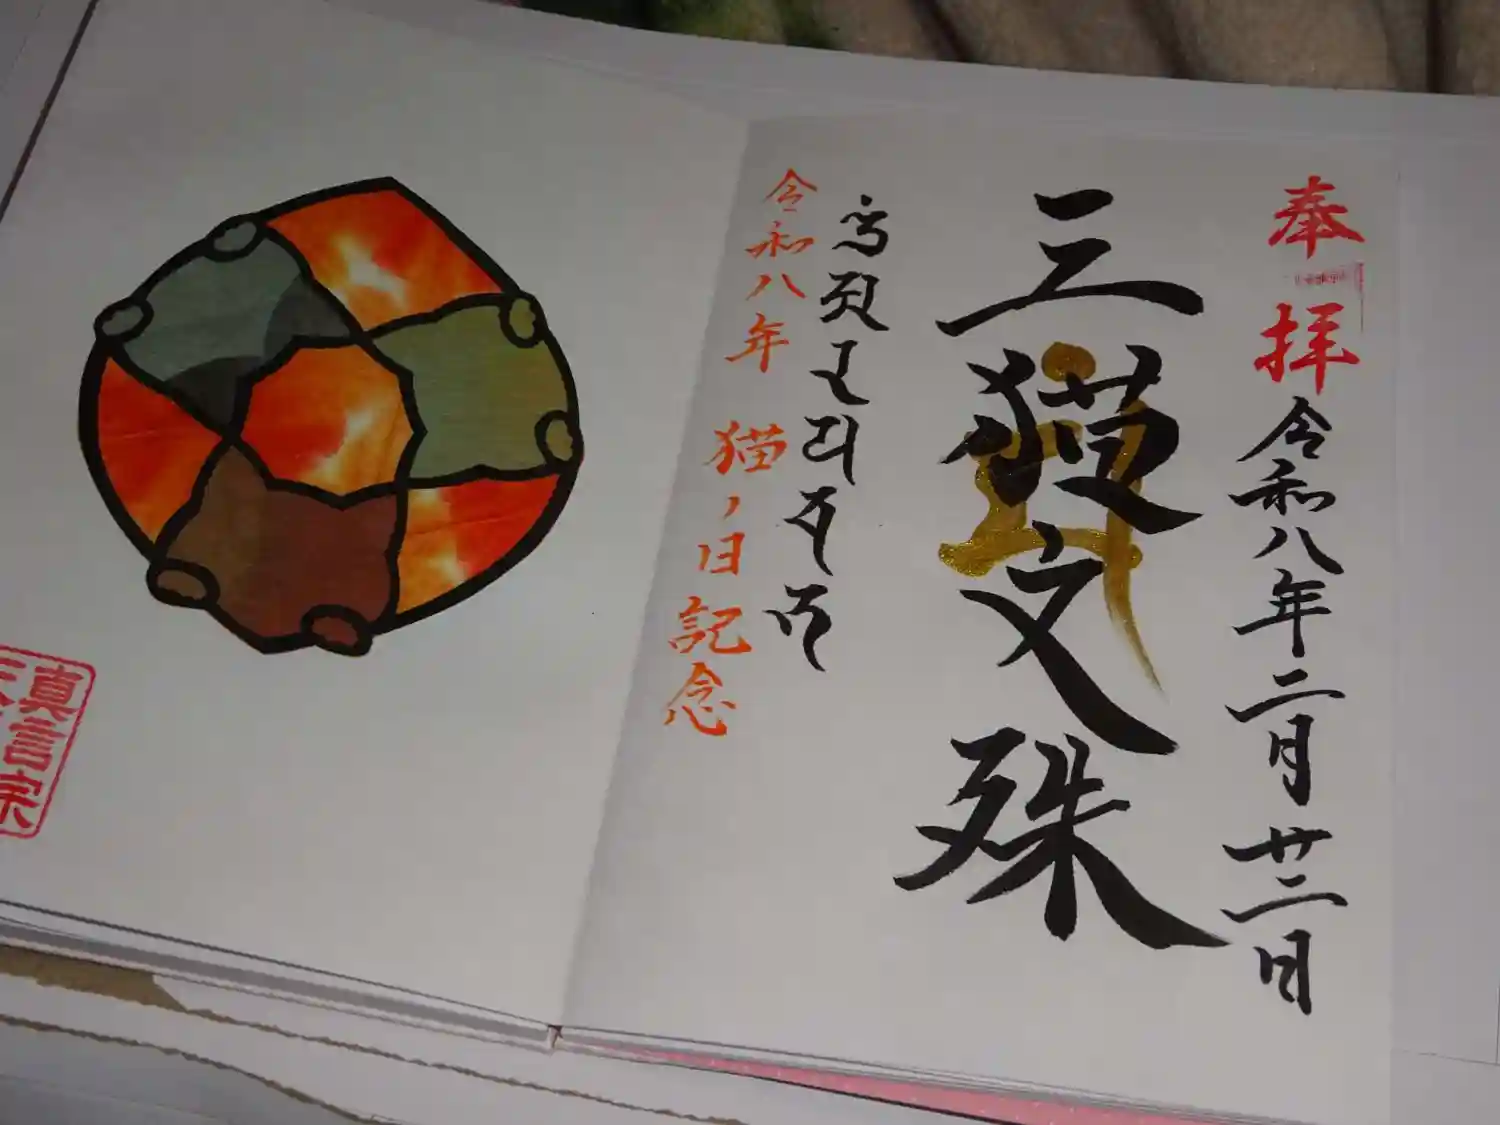 奉拝
令和八年二月廿二日
三猫文殊
令和八年 猫ノ日 記念
真言宗